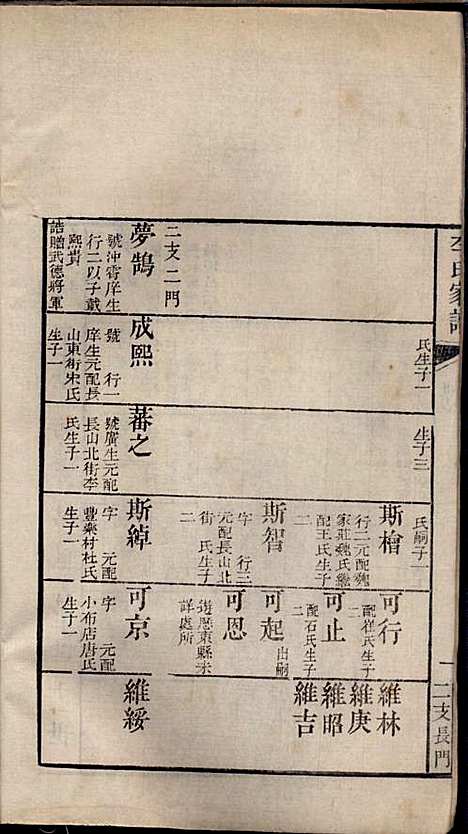 李氏家譜
二支長門
氏生子一
生子三
氏嗣子一
斯檜
行二元配魏
家莊魏氏繼
配王氏生子
二
斯智
字 行三
元配長山北
街 氏生子
二
可行
配崔氏生子
二
可止
配石氏生子
二
可起
出嗣
可恩
遊歷東縣未
詳處所
維林
維庚
維昭
維吉
二支二門
夢鵠
號沖霄庠生
行二以子戴
熙貴
誥贈武德將軍
成熙
號 行一
庠生元配長
山東街宋氏
生子一
蕃之
號廣生元配
長山北街李
氏生子一
斯綽
字 元配
豐樂村杜氏
生子一
可京
字 元配
小布店唐氏
生子一
維綏